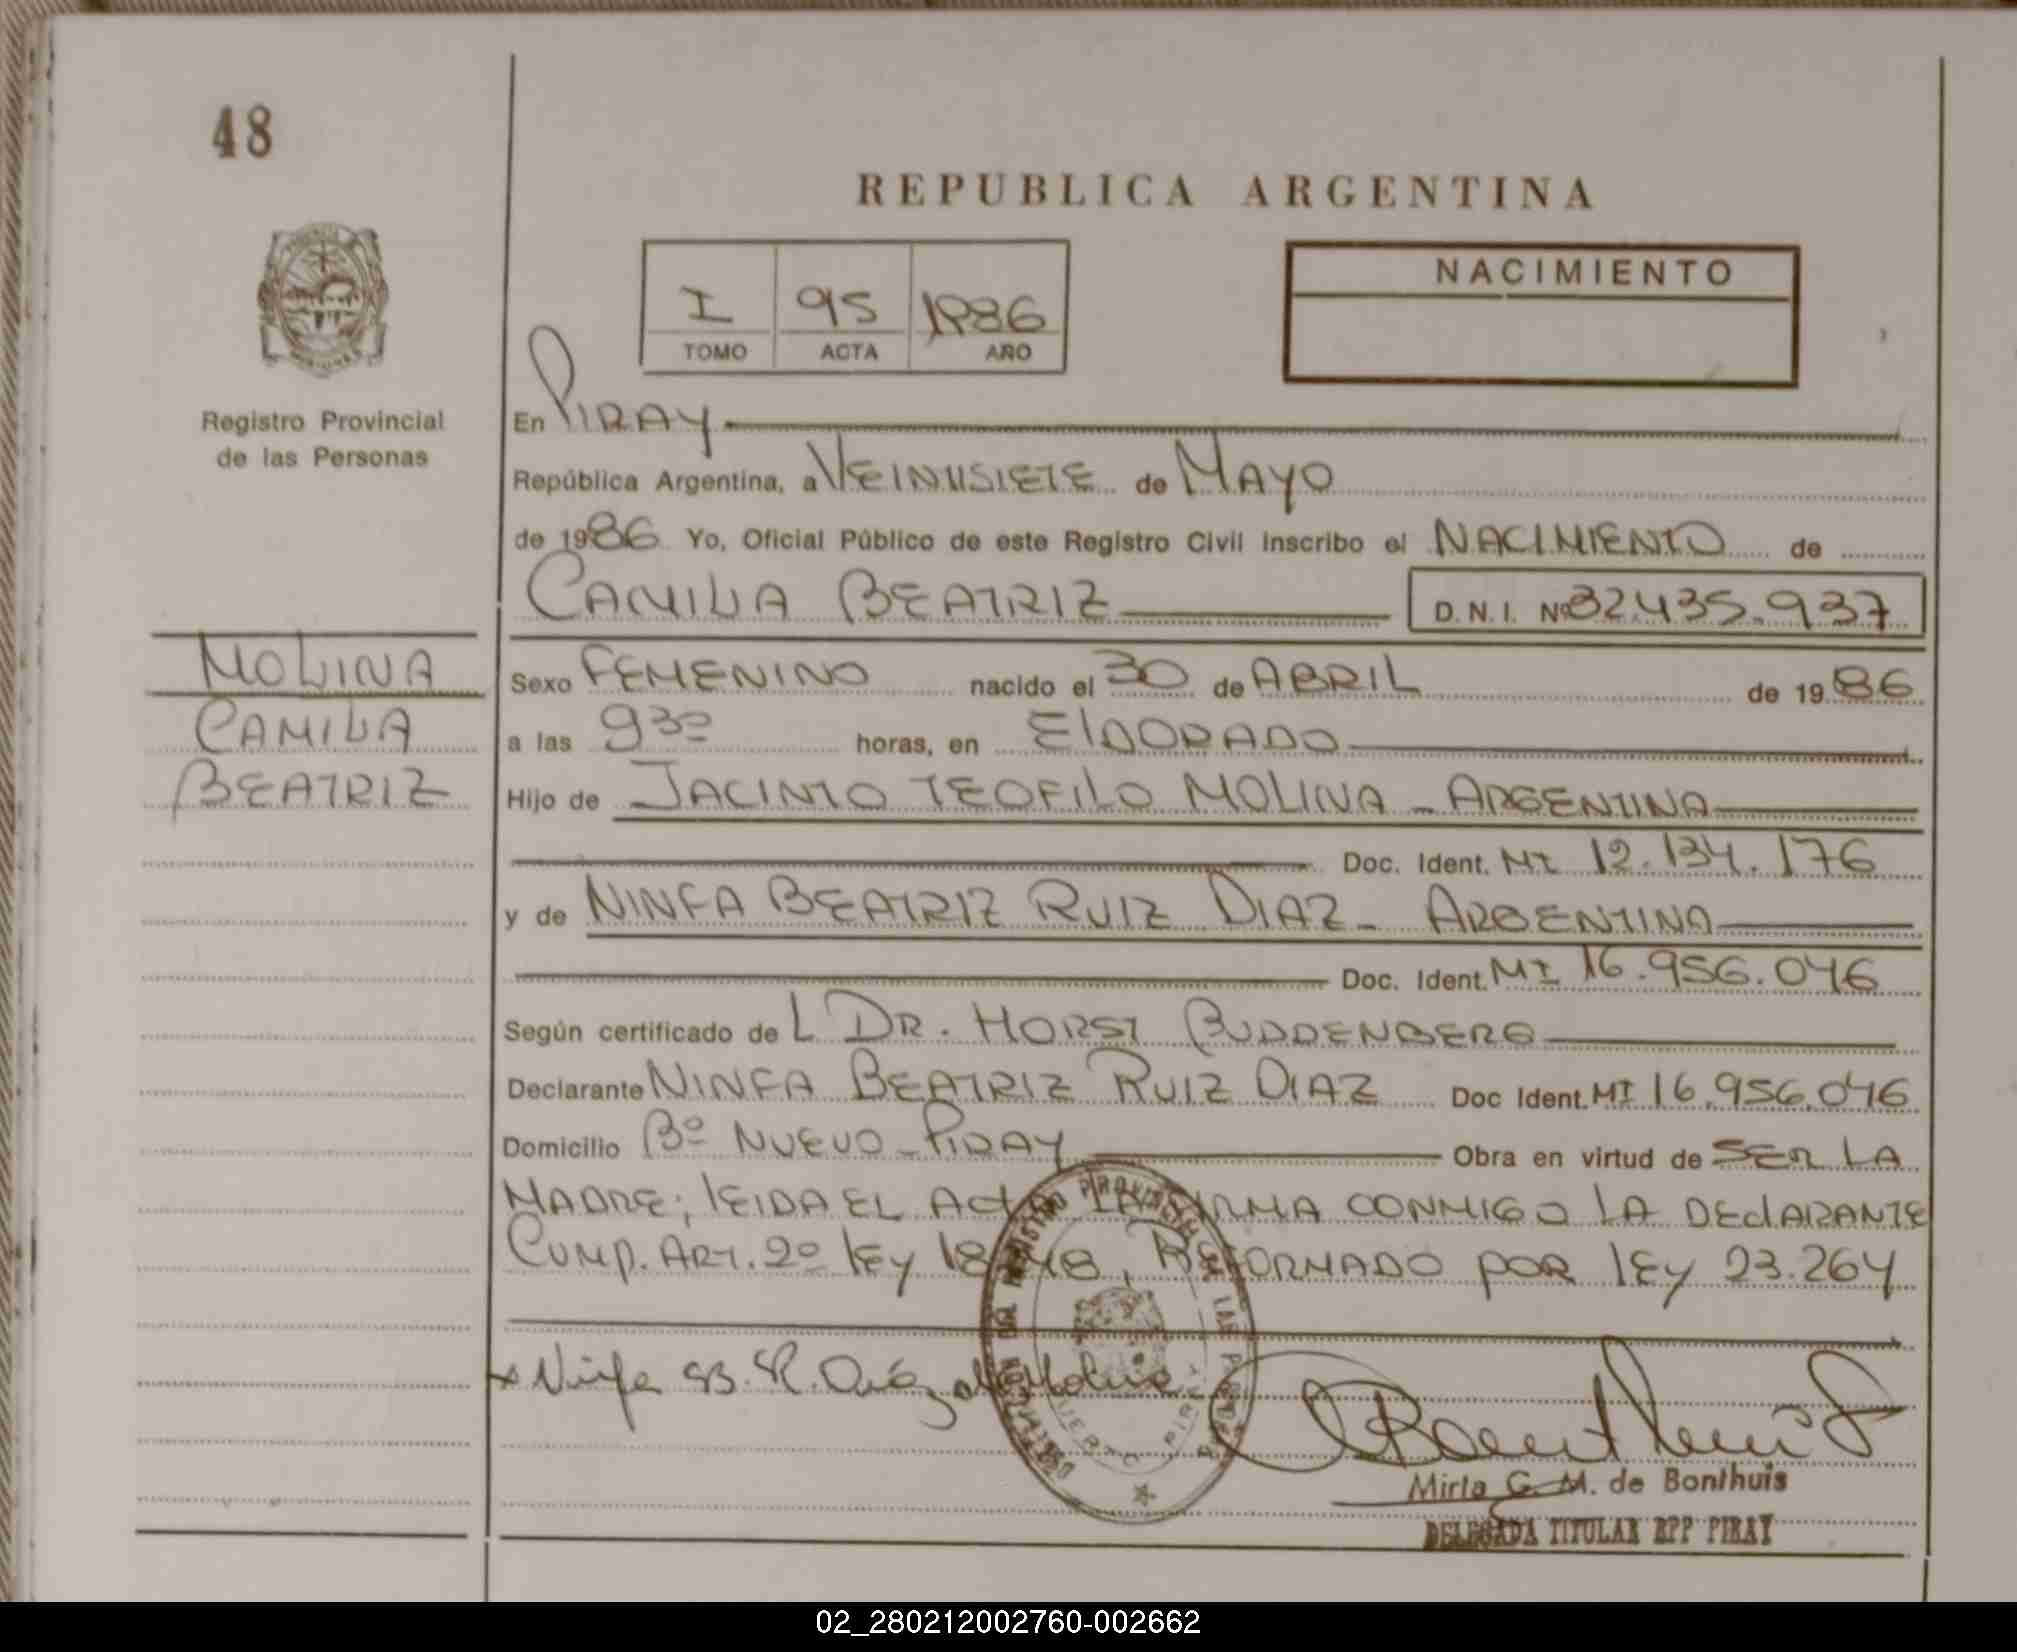 48
REPUBLICA ARGENTINA
I 95 1986
TOMO ACTA AÑO
NACIMIENTO
Registro Provincial
de las Personas
En PIRAY
República Argentina, a VEINTISIETE de MAYO
de 1986 Yo, Oficial Público de este Registro Civil inscribo el NACIMIENTO de
CAMILIA BEATRIZ D.N.I. Nº 32.435.937
MOLINA
CAMILIA
BEATRIZ
Sexo FEMENINO nacido el 30 de ABRIL de 1986
a las 930 horas, en ElDORADO
Hijo de JACINTO TEOFILO MOLINA - ARGENTINA
Doc. Ident. MI 12.134.176
y de NINFA BEATRIZ RUIZ DIAZ - ARGENTINA
Doc. Ident. MI 16.956.046
Según certificado de L DR. HORST BUDDENBERG
Declarante NINFA BEATRIZ RUIZ DIAZ Doc Ident. MI 16.956.046
Domicilio Bº NUEVO - PIRAY Obra en virtud de SER LA
MADRE; lEIDA EL ACTA LA FIRMA CONMIGO LA DEClARANTE
CUMP. ART. 2º lEy 18 48, REFORMADO POR lEy 23.264
Ninfa B. R. Diaz de Molina
PUERTO PIRAY
Mirta G. M. de Bonthuis
DELEGADA TITULAR RPP PIRAY
02_280212002760-002662